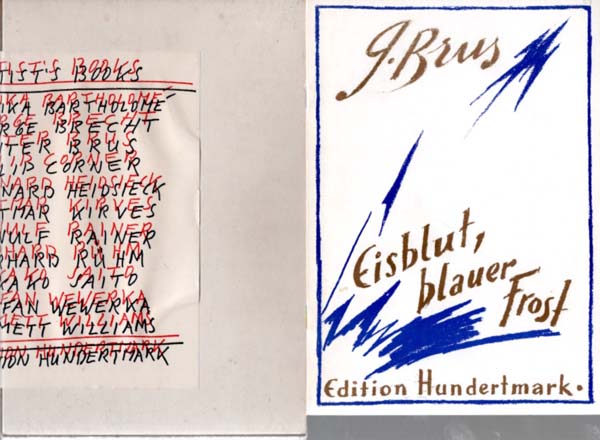 TIST'S BOOKS
IKA BARTHOLOMÉ
RGE BRECHT
TER BRUS
LIP CORNER
NARD HEIDSIECK
TMAR KIRVES
NULF RAINER
RHARD RÜHM
KAKO SAITO
FAN WEWERKA
METT WILLIAMS
ION HUNDERTMARK
G. Brus
Eisblut,
blauer
Frost
Edition Hundertmark.